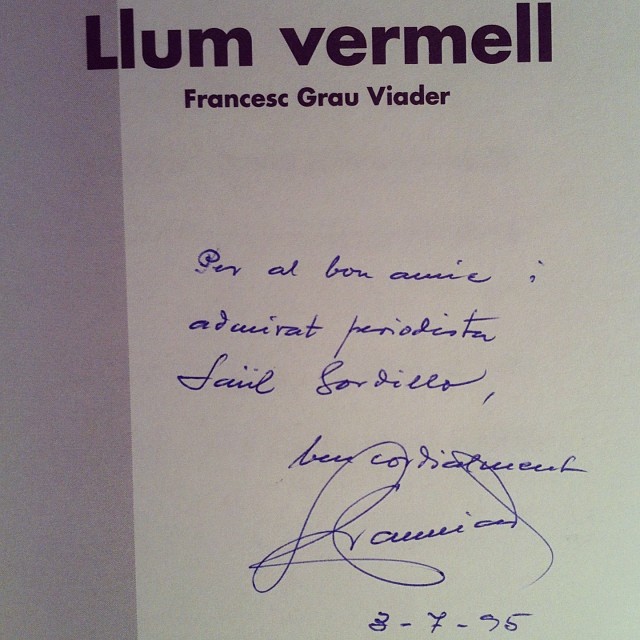 Llum vermell
Francesc Grau Viader
Per al bon amic i
admirat periodista
Saül Gordillo,
ben cordialment
3-7-95